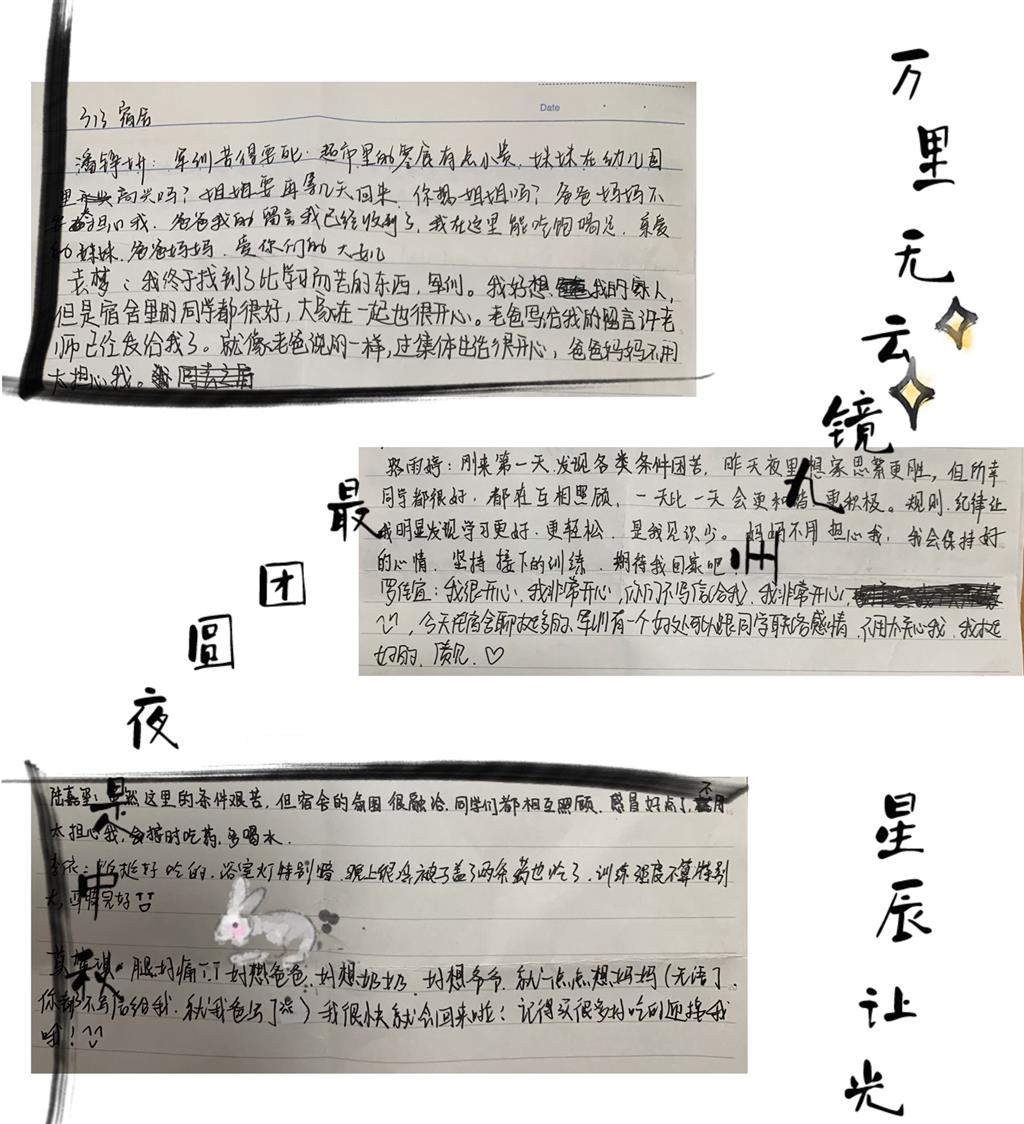 万里无云镜九州
最团圆夜是中秋
星辰让光
Date
313 宿舍
潘锦妍：军训苦得要死. 超市里的零食有点小贵, 妹妹在幼儿园
里高兴吗？姐姐要再等几天回来. 你想姐姐吗？爸爸妈妈不
要担心我. 爸爸我的留言我已经收到了, 我在这里能吃饱喝足. 亲爱
的妹妹. 爸爸妈妈. 爱你们的大女儿
梦：我终于找到了比学习而苦的东西, 军训。我好想我的家人,
但是宿舍里的同学都很好, 大家在一起也很开心。老爸写给我的留言许老
师已经发给我了。就像老爸说的一样, 过集体生活很开心, 爸爸妈妈不用
太担心我。
路雨婷：刚来第一天. 发现各类条件困苦, 昨天夜里想家思绪更胜, 但所幸
同学都很好. 都在互相照顾, 一天比一天会更和谐更积极。规则. 纪律让
我明显发现学习更好. 更轻松. 是我见识少。妈妈不用担心我, 我会保持好
的心情. 坚持接下的训练. 期待我回家吧
罗佳宜：我很开心, 我非常开心, 你们不写信给我, 我非常开心,
, 今天在宿舍聊挺多的. 军训有一个好处可以跟同学联络感情. 不用太关心我, 我挺
好的. ♡
陆嘉：虽然这里的条件艰苦, 但宿舍的氛围很融洽. 同学们都相互照顾. 感冒好点了, 不用
太担心我, 会按时吃药, 多喝水.
李依：饭挺好吃的, 浴室灯特别暗. 晚上很冷被子盖了两条药也吃了. 训练强度不算特别
大,
腿好痛TT 好想爸爸, 好想奶奶. 好想爷爷. 就一点点想妈妈 (无语了.
你都不写信给我. 就我爸写了) 我很快就会回来啦！记得买很多好吃的迎接我
哦！^^